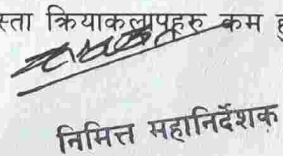 क्रियाकलापहरु कम
निमित्त महानिर्देशक